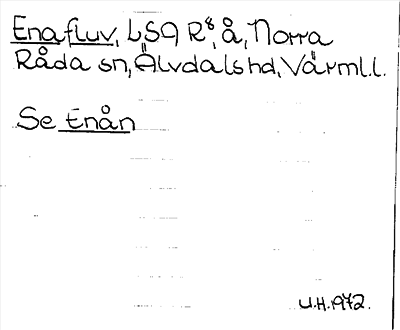 Ena fluv, LSA R⁸, å, Norra
Råda sn, Älvdals hd, Värml.l.
Se Enån
U.H.1972.